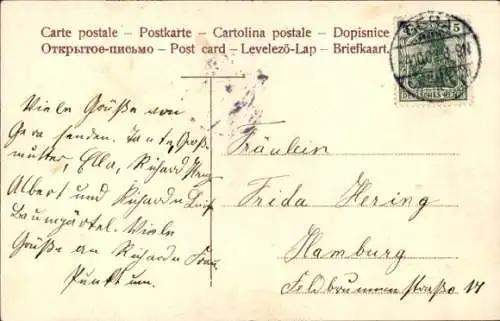 Carte postale – Postkarte – Cartolina postale – Dopisnice
Открытое-письмо – Post card – Levelező-Lap – Briefkaart.
5
DEUTSCHES REICH
Viele Grüße von
Gera senden. Tante, Groß-
mutter, Ella, Richard
Albert und Richard
Baumgärtel. Viele
Grüße an Richard
Punktum.
Fräulein
Frida Hering
Hamburg
Feldbrunnenstraße 14